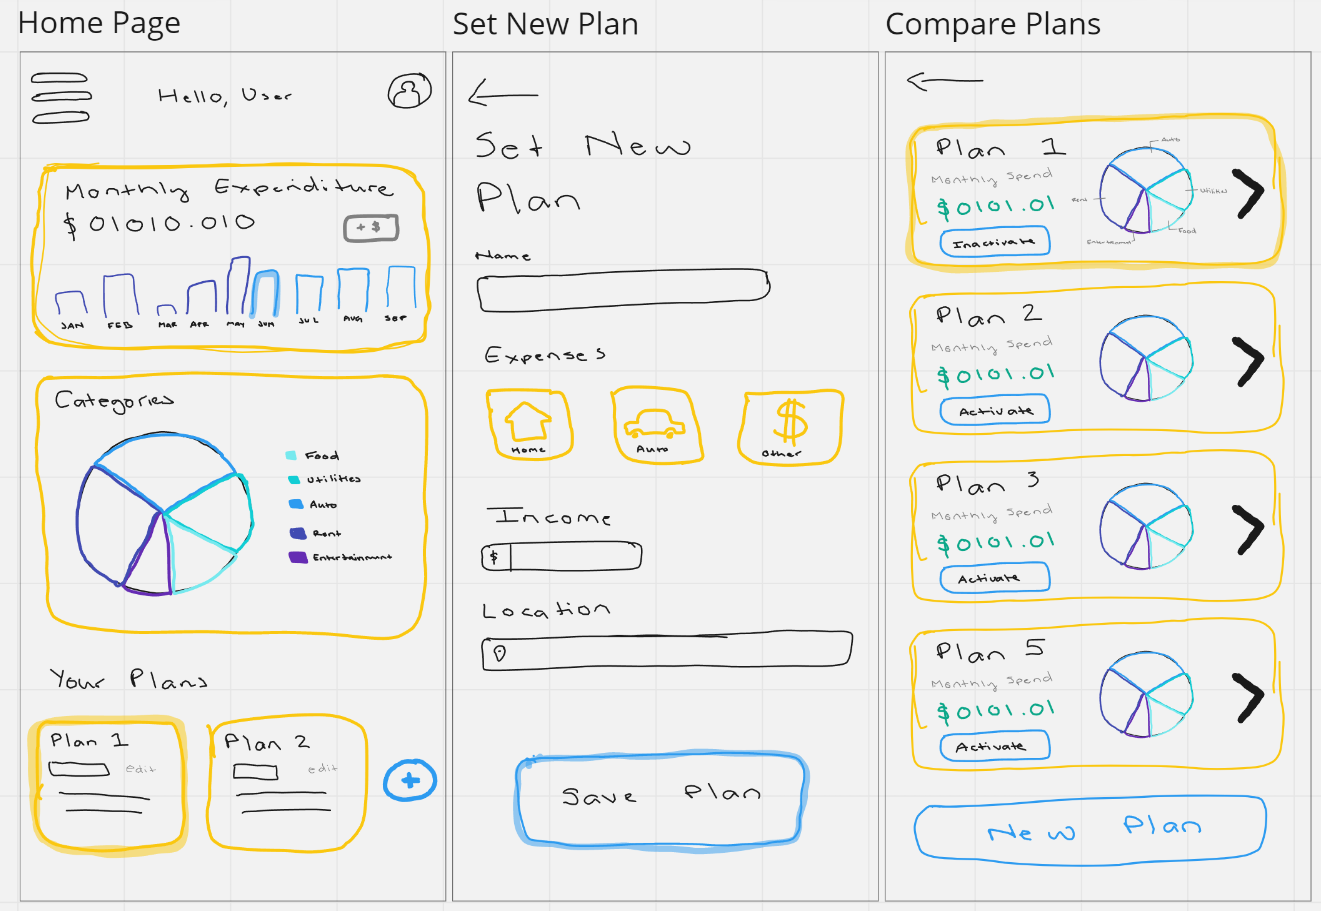 Home Page
Hello, User
Monthly Expenditure
$ 01010.010
+ $
JAN FEB MAR APR MAY JUN JUL AUG SEP
Categories
Food
Utilities
Auto
Rent
Entertainment
Your Plans
Plan 1
edit
Plan 2
edit
+
Set New Plan
Set New
Plan
Name
Expenses
Home
Auto
$
Other
Income
$
Location
Save Plan
Compare Plans
Plan 1
Monthly Spend
$0101.01
Inactivate
Auto
Utilities
Rent
Food
Entertainment
Plan 2
Monthly Spend
$0101.01
Activate
Plan 3
Monthly Spend
$0101.01
Activate
Plan 5
Monthly Spend
$0101.01
Activate
New Plan